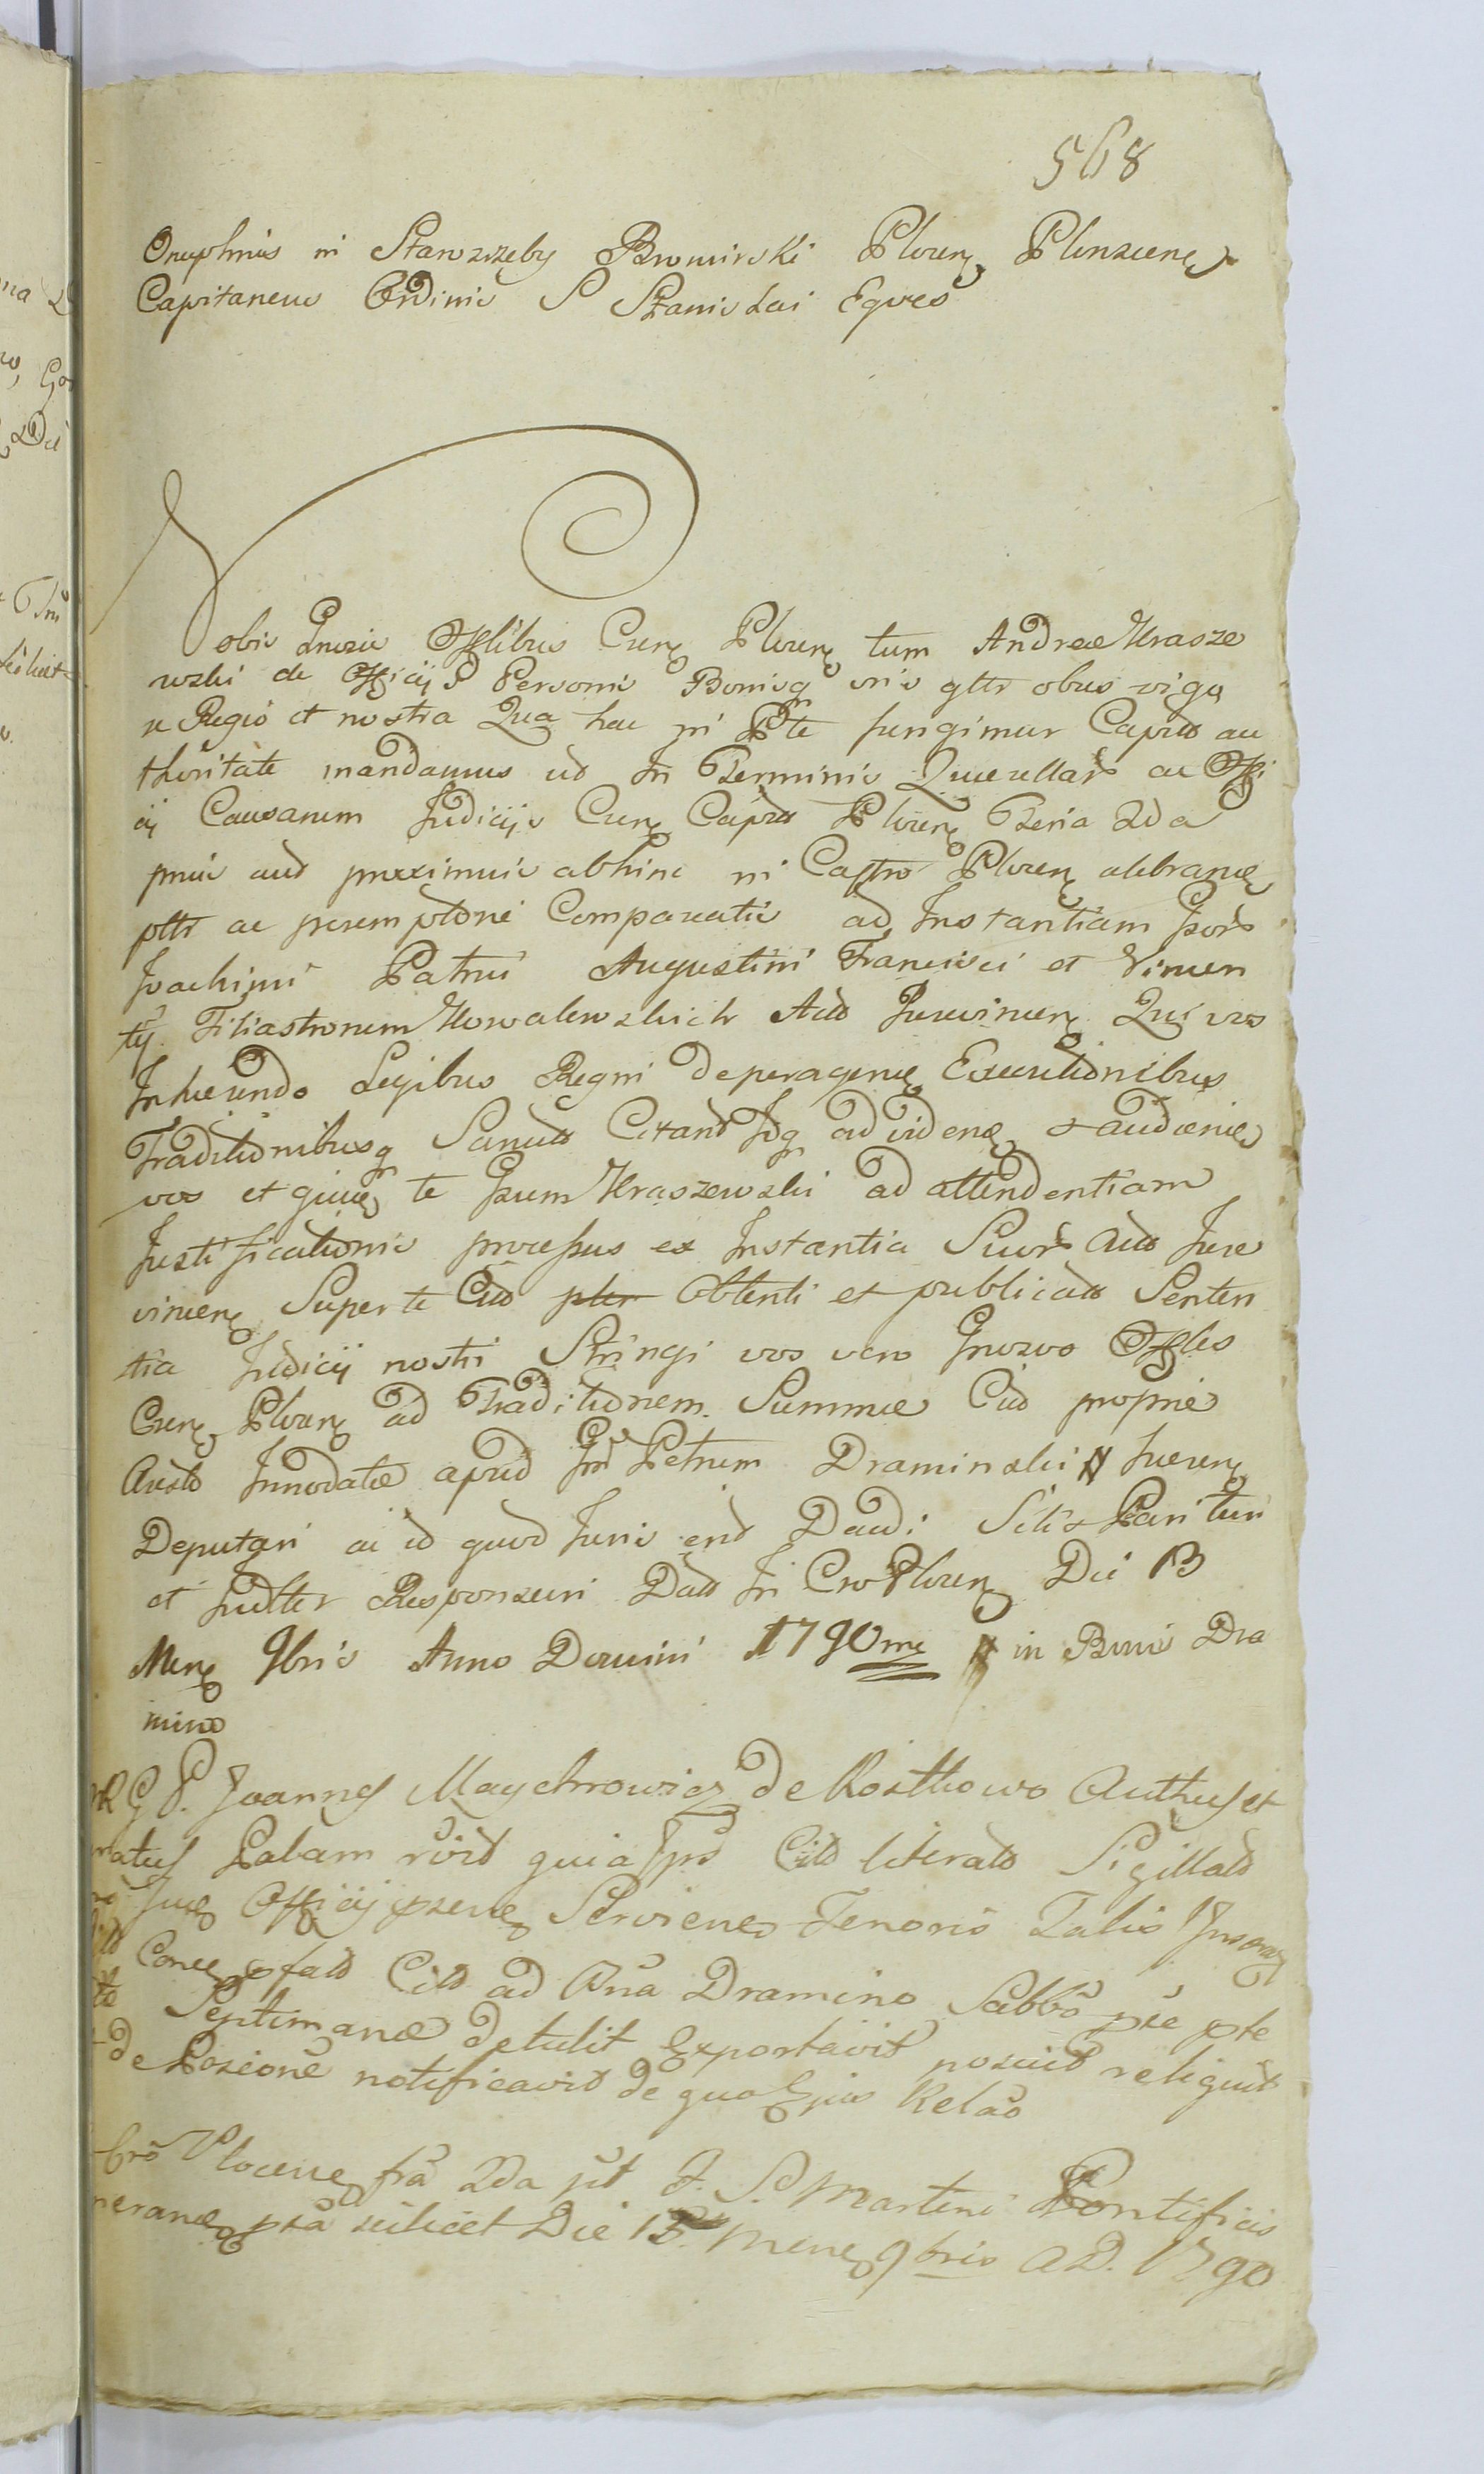 568
Onuphrius in Starozrzeby Bromirski Plocen Plonscens
Capitaneus Ordinis S Stanislai Eques
Vobis Gnosis Offlibus Cien Plocen tum Andreae Krasze
wski de Officijs Personis Bonisq vris gltr obus vigo
re Regio et nostra Qua hac in Pte fungimur Captis au
thoritate mandamus ut In Terminis Querellar ac Offi
cij Causarum Judicijs Cien Captis Plocen Feria 2da
pmis aut proximis abhinc in Castro Plocen celebran
pltr ac peremptorie Compareatis ad Instantiam Gsor
Joachimi Patrui Augustini Francisci et Vincen
tij Filiastrorum Kowalewskich Act Jurevincen Qui vos
Inhaerendo Legibus Regni de peragen Executionibus
Traditionibusq Sancit Citant Idq ad viden & audiens
vos et quidem te Gsum Kraszewski ad attendentiam
Justificationis processus ex Instantia Suor Act Jure
vincen Super te Cito Obtenti et publicati Senten
tia Judicij nostri Stringi vos vero Gnosos Offles
Cien Plocen ad Traditionem Summae Cito proprie
Aresto Innodatae apud Gm Petrum Draminski # haeren
Deputari ac id quod Juris erit Decidi Sitis Parituri
et Judltr Responsuri Datt In Cro Plocen Die 13
Men 9bris Anno Domini 1790mo # in Bonis Dra
mino
G P. Joannes Maychrowicz de Rostkowo Authus et
Palam roit quia Ips Citt literatt Sigillatt
Officij psen Serviens Tenoris Talis
Concep pfatt Citt ad Bna Dramino Sabbo pte pte
Septimanae detulit Exportavit posuit reliquit
de Posicione notificavit de quo Ejus Relao
Plocen fra 2da pt F. S. Martini Pontificis
pxa scilicet Die 15 Mens 9bris AD. 1790